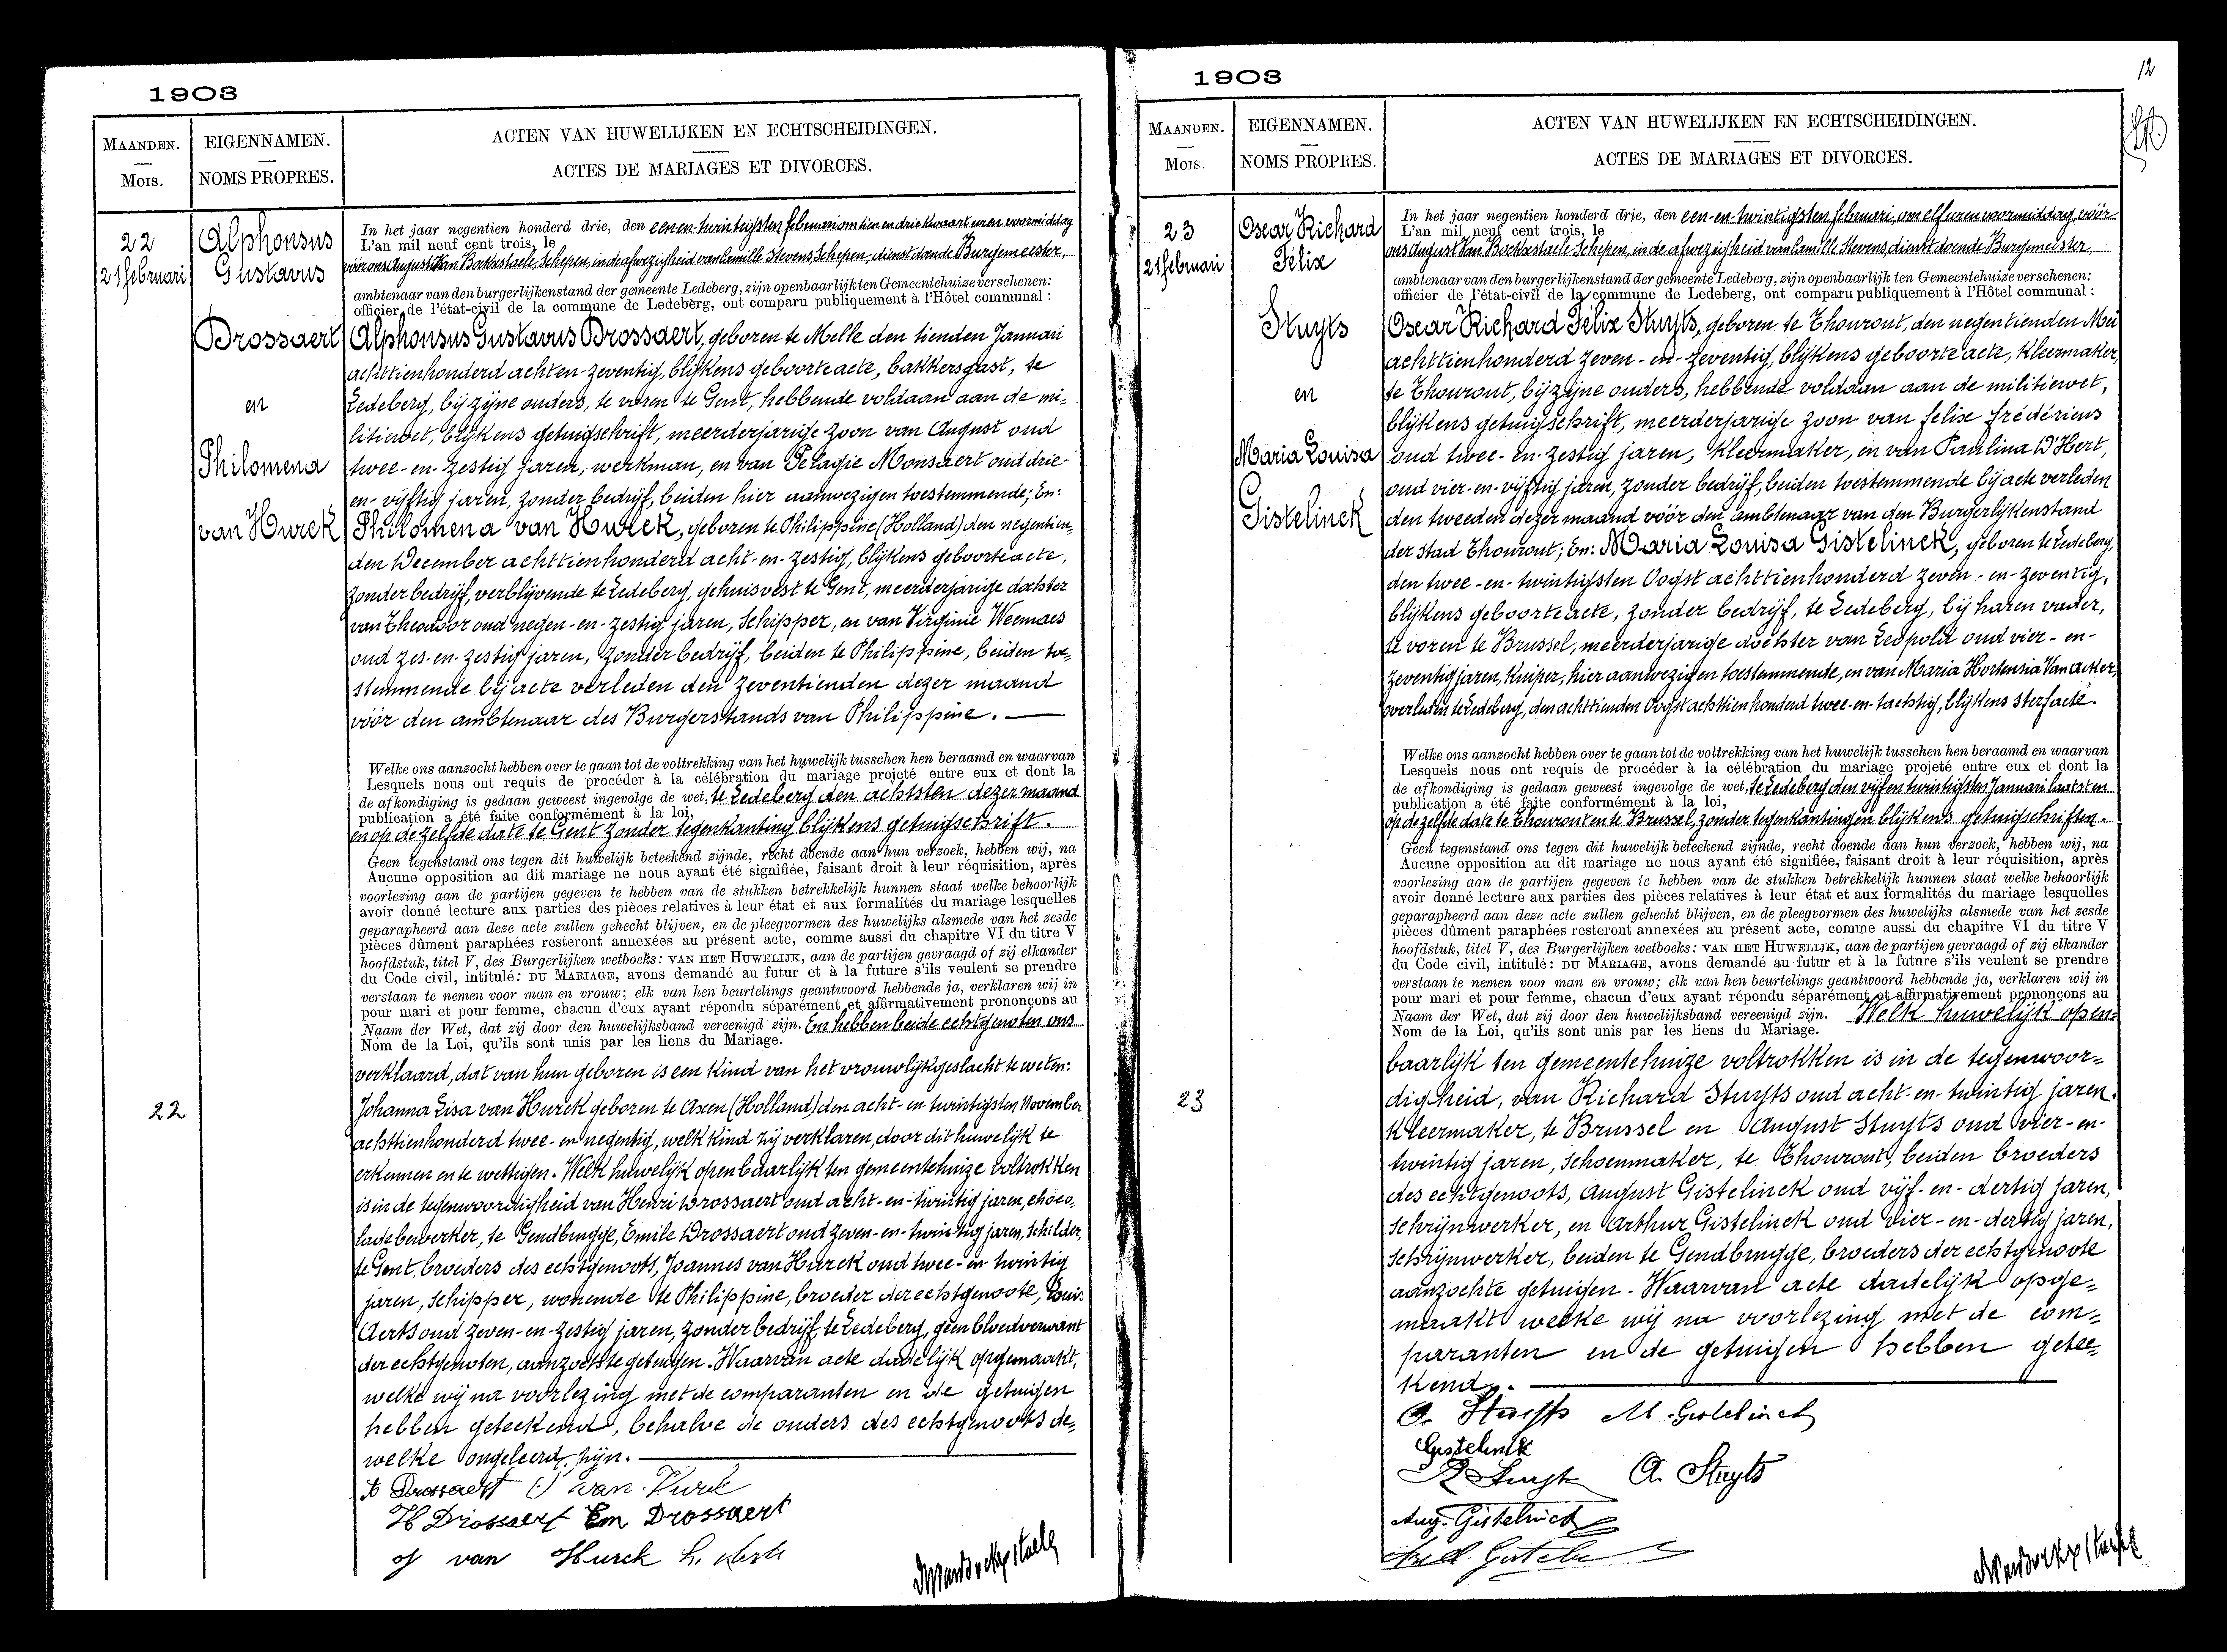 1903
MAANDEN.
Mois.
EIGENNAMEN.
NOMS PROPRES.
ACTEN VAN HUWELIJKEN EN ECHTSCHEIDINGEN.
ACTES DE MARIAGES ET DIVORCES.
22
21 februari
Alphonsus
Gustavus
Drossaert
en
Philomena
van Hurck
22
In het jaar negentien honderd drie, den een en twintigsten februari om tien en drie kwaart uren voormiddag
L'an mil neuf cent trois, le
vóór ons August Van Bockxstaele Schepen, in de afwezigheid van Camille Stevens, Schepen, dienstdoende Burgemeester,
ambtenaar van den burgerlijkenstand der gemeente Ledeberg, zijn openbaarlijk ten Gemeentehuize verschenen:
officier de l'état-civil de la commune de Ledeberg, ont comparu publiquement à l'Hôtel communal :
Alphonsus Gustavus Drossaert, geboren te Melle den tienden Januari
achttienhonderd acht en-zeventig, blijkens geboorteacte, bakkersgast, te
Ledeberg, bij zijne ouders, te voren te Gent, hebbende voldaan aan de mi-
litiewet, blijkens getuigschrift, meerderjarige zoon van August oud
twee-en-zestig jaren, werkman, en van Pelagie Monsaert oud drie-
en-vijftig jaren, zonder bedrijf, beiden hier aanwezig en toestemmende; En:
Philomena van Hurck, geboren te Philippine (Holland) den negentien-
den December achttienhonderd acht-en-zestig, blijkens geboorteacte,
zonder bedrijf, verblijvende te Ledeberg, gehuisvest te Gent, meerderjarige dochter
van Theodoor oud negen-en-zestig jaren, Schipper, en van Virginie Weemaes
oud zes-en-zestig jaren, zonder bedrijf, beiden te Philippine, beiden toe-
stemmende bij acte verleden den zeventienden dezer maand
vóór den ambtenaar des Burgerstands van Philippine.
Welke ons aanzocht hebben over te gaan tot de voltrekking van het huwelijk tusschen hen beraamd en waarvan
Lesquels nous ont requis de procéder à la célébration du mariage projeté entre eux et dont la
de afkondiging is gedaan geweest ingevolge de wet, te Ledeberg den achtsten dezer maand
publication a été faite conformément à la loi,
en op dezelfde date te Gent zonder tegenkanting blijkens getuigschrift.
Geen tegenstand ons tegen dit huwelijk beteekend zijnde, recht doende aan hun verzoek, hebben wij, na
Aucune opposition au dit mariage ne nous ayant été signifiée, faisant droit à leur réquisition, après
voorlezing aan de partijen gegeven te hebben van de stukken betrekkelijk hunnen staat welke behoorlijk
avoir donné lecture aux parties des pièces relatives à leur état et aux formalités du mariage lesquelles
geparapheerd aan deze acte zullen gehecht blijven, en de pleegvormen des huwelijks alsmede van het zesde
pièces dûment paraphées resteront annexées au présent acte, comme aussi du chapitre VI du titre V
hoofdstuk, titel V, des Burgerlijken wetboeks: VAN HET HUWELIJK, aan de partijen gevraagd of zij elkander
du Code civil, intitulé: DU MARIAGE, avons demandé au futur et à la future s'ils veulent se prendre
verstaan te nemen voor man en vrouw; elk van hen beurtelings geantwoord hebbende ja, verklaren wij in
pour mari et pour femme, chacun d'eux ayant répondu séparément et affirmativement prononçons au
Naam der Wet, dat zij door den huwelijksband vereenigd zijn. En hebben beide echtgenoten ons
Nom de la Loi, qu'ils sont unis par les liens du Mariage.
verklaard, dat van hun geboren is een kind van het vrouwlijkgeslacht te weten:
Johanna Lisa van Hurck geboren te Axen (Holland) den acht-en-twintigsten November
achttienhonderd twee-en-negentig, welk kind zij verklaren, door dit huwelijk te
erkennen en te wettigen. Welk huwelijk openbaarlijk ten gemeentehuize voltrokken
is in de tegenwoordigheid van Henri Drossaert oud acht-en-twintig jaren, choco-
lade bewerker, te Gendbrugge, Emile Drossaert oud zeven-en-twintig jaren, Schilder,
te Gent, broeders des echtgenoots, Joannes van Hurck oud twee-en-twintig
jaren, Schipper, wonende te Philippine, broeder der echtgenoote, Louis
Aerts oud zeven-en-zestig jaren, zonder bedrijf, te Ledeberg, geen bloedverwant
der echtgenoten, aanzochte getuigen. Waarvan acte dadelijk opgemaakt,
welke wij na voorlezing met de comparanten en de getuigen
hebben geteekend, behalve de ouders des echtgenoots de-
welke ongeleerd zijn.
Drossaert van Hurck
H Drossaert Em Drossaert
J van Hurck L. Aerts
AVanBockxstaele
1903
12
MAANDEN.
Mois.
EIGENNAMEN.
NOMS PROPRES.
ACTEN VAN HUWELIJKEN EN ECHTSCHEIDINGEN.
ACTES DE MARIAGES ET DIVORCES.
23
21 februari
Oscar Richard
Félix
Stuyts
en
Maria Louisa
Gistelinck
23
In het jaar negentien honderd drie, den een-en-twintigsten februari, om elf uren voormiddag, vóór
L'an mil neuf cent trois, le
ons August Van Bockxstaele Schepen, in de afwezigheid van Camille Stevens, dienstdoende Burgemeester,
ambtenaar van den burgerlijkenstand der gemeente Ledeberg, zijn openbaarlijk ten Gemeentehuize verschenen:
officier de l'état-civil de la commune de Ledeberg, ont comparu publiquement à l'Hôtel communal :
Oscar Richard Félix Stuyts, geboren te Thourout, den negentienden Mei
achttienhonderd zeven-en-zeventig, blijkens geboorteacte, kleermaker,
te Thourout, bij zijne ouders, hebbende voldaan aan de militiewet,
blijkens getuigschrift, meerderjarige zoon van felix frédériens
oud twee-en-zestig jaren, kleermaker, en van Paulina D'Hert,
oud vier-en-vijftig jaren, zonder bedrijf, beiden toestemmende bij acte verleden
den tweeden dezer maand vóór den ambtenaar van den Burgerlijkenstand
der stad Thourout; En: Maria Louisa Gistelinck, geboren te Ledeberg,
den twee-en-twintigsten Oogst achttienhonderd zeven-en-zeventig,
blijkens geboorteacte, zonder bedrijf, te Ledeberg, bij haren vader,
te voren te Brussel, meerderjarige dochter van Leopold oud vier-en-
zeventig jaren, Kuiper, hier aanwezig en toestemmende, en van Maria Hortensia Van acker,
overleden te Ledeberg, den achttienden Oogst achttienhonderd twee-en-tachtig, blijkens sterfacte.
Welke ons aanzocht hebben over te gaan tot de voltrekking van het huwelijk tusschen hen beraamd en waarvan
Lesquels nous ont requis de procéder à la célébration du mariage projeté entre eux et dont la
de afkondiging is gedaan geweest ingevolge de wet, te Ledeberg den vijf en twintigsten Januari laatst en
publication a été faite conformément à la loi,
op dezelfde date te Thourout en te Brussel, zonder tegenkantingen blijkens getuigschriften.
Geen tegenstand ons tegen dit huwelijk beteekend zijnde, recht doende aan hun verzoek, hebben wij, na
Aucune opposition au dit mariage ne nous ayant été signifiée, faisant droit à leur réquisition, après
voorlezing aan de partijen gegeven te hebben van de stukken betrekkelijk hunnen staat welke behoorlijk
avoir donné lecture aux parties des pièces relatives à leur état et aux formalités du mariage lesquelles
geparapheerd aan deze acte zullen gehecht blijven, en de pleegvormen des huwelijks alsmede van het zesde
pièces dûment paraphées resteront annexées au présent acte, comme aussi du chapitre VI du titre V
hoofdstuk, titel V, des Burgerlijken wetboeks: VAN HET HUWELIJK, aan de partijen gevraagd of zij elkander
du Code civil, intitulé: DU MARIAGE, avons demandé au futur et à la future s'ils veulent se prendre
verstaan te nemen voor man en vrouw; elk van hen beurtelings geantwoord hebbende ja, verklaren wij in
pour mari et pour femme, chacun d'eux ayant répondu séparément et affirmativement prononçons au
Naam der Wet, dat zij door den huwelijksband vereenigd zijn. Welk huwelijk open-
Nom de la Loi, qu'ils sont unis par les liens du Mariage.
baarlijk ten gemeentehuize voltrokken is in de tegenwoor-
digheid, van Richard Stuyts oud acht-en-twintig jaren.
Kleermaker, te Brussel en August Stuyts oud vier-en-
twintig jaren, schoenmaker, te Thourout, beiden broeders
des echtgenoots, August Gistelinck oud vijf-en-dertig jaren,
schrijnwerker, en Arthur Gistelinck oud vier-en-dertig jaren,
schrijnwerker, beiden te Gendbrugge, broeders der echtgenoote
aanzochte getuigen. Waarvan acte dadelijk opge-
maakt welke wij na voorlezing met de com-
paranten en de getuigen hebben getee-
kend.
O. Stuyts M. Gistelinck
Gistelinck
R Stuyts A. Stuyts
Aug. Gistelinck
AVanBockxstaele